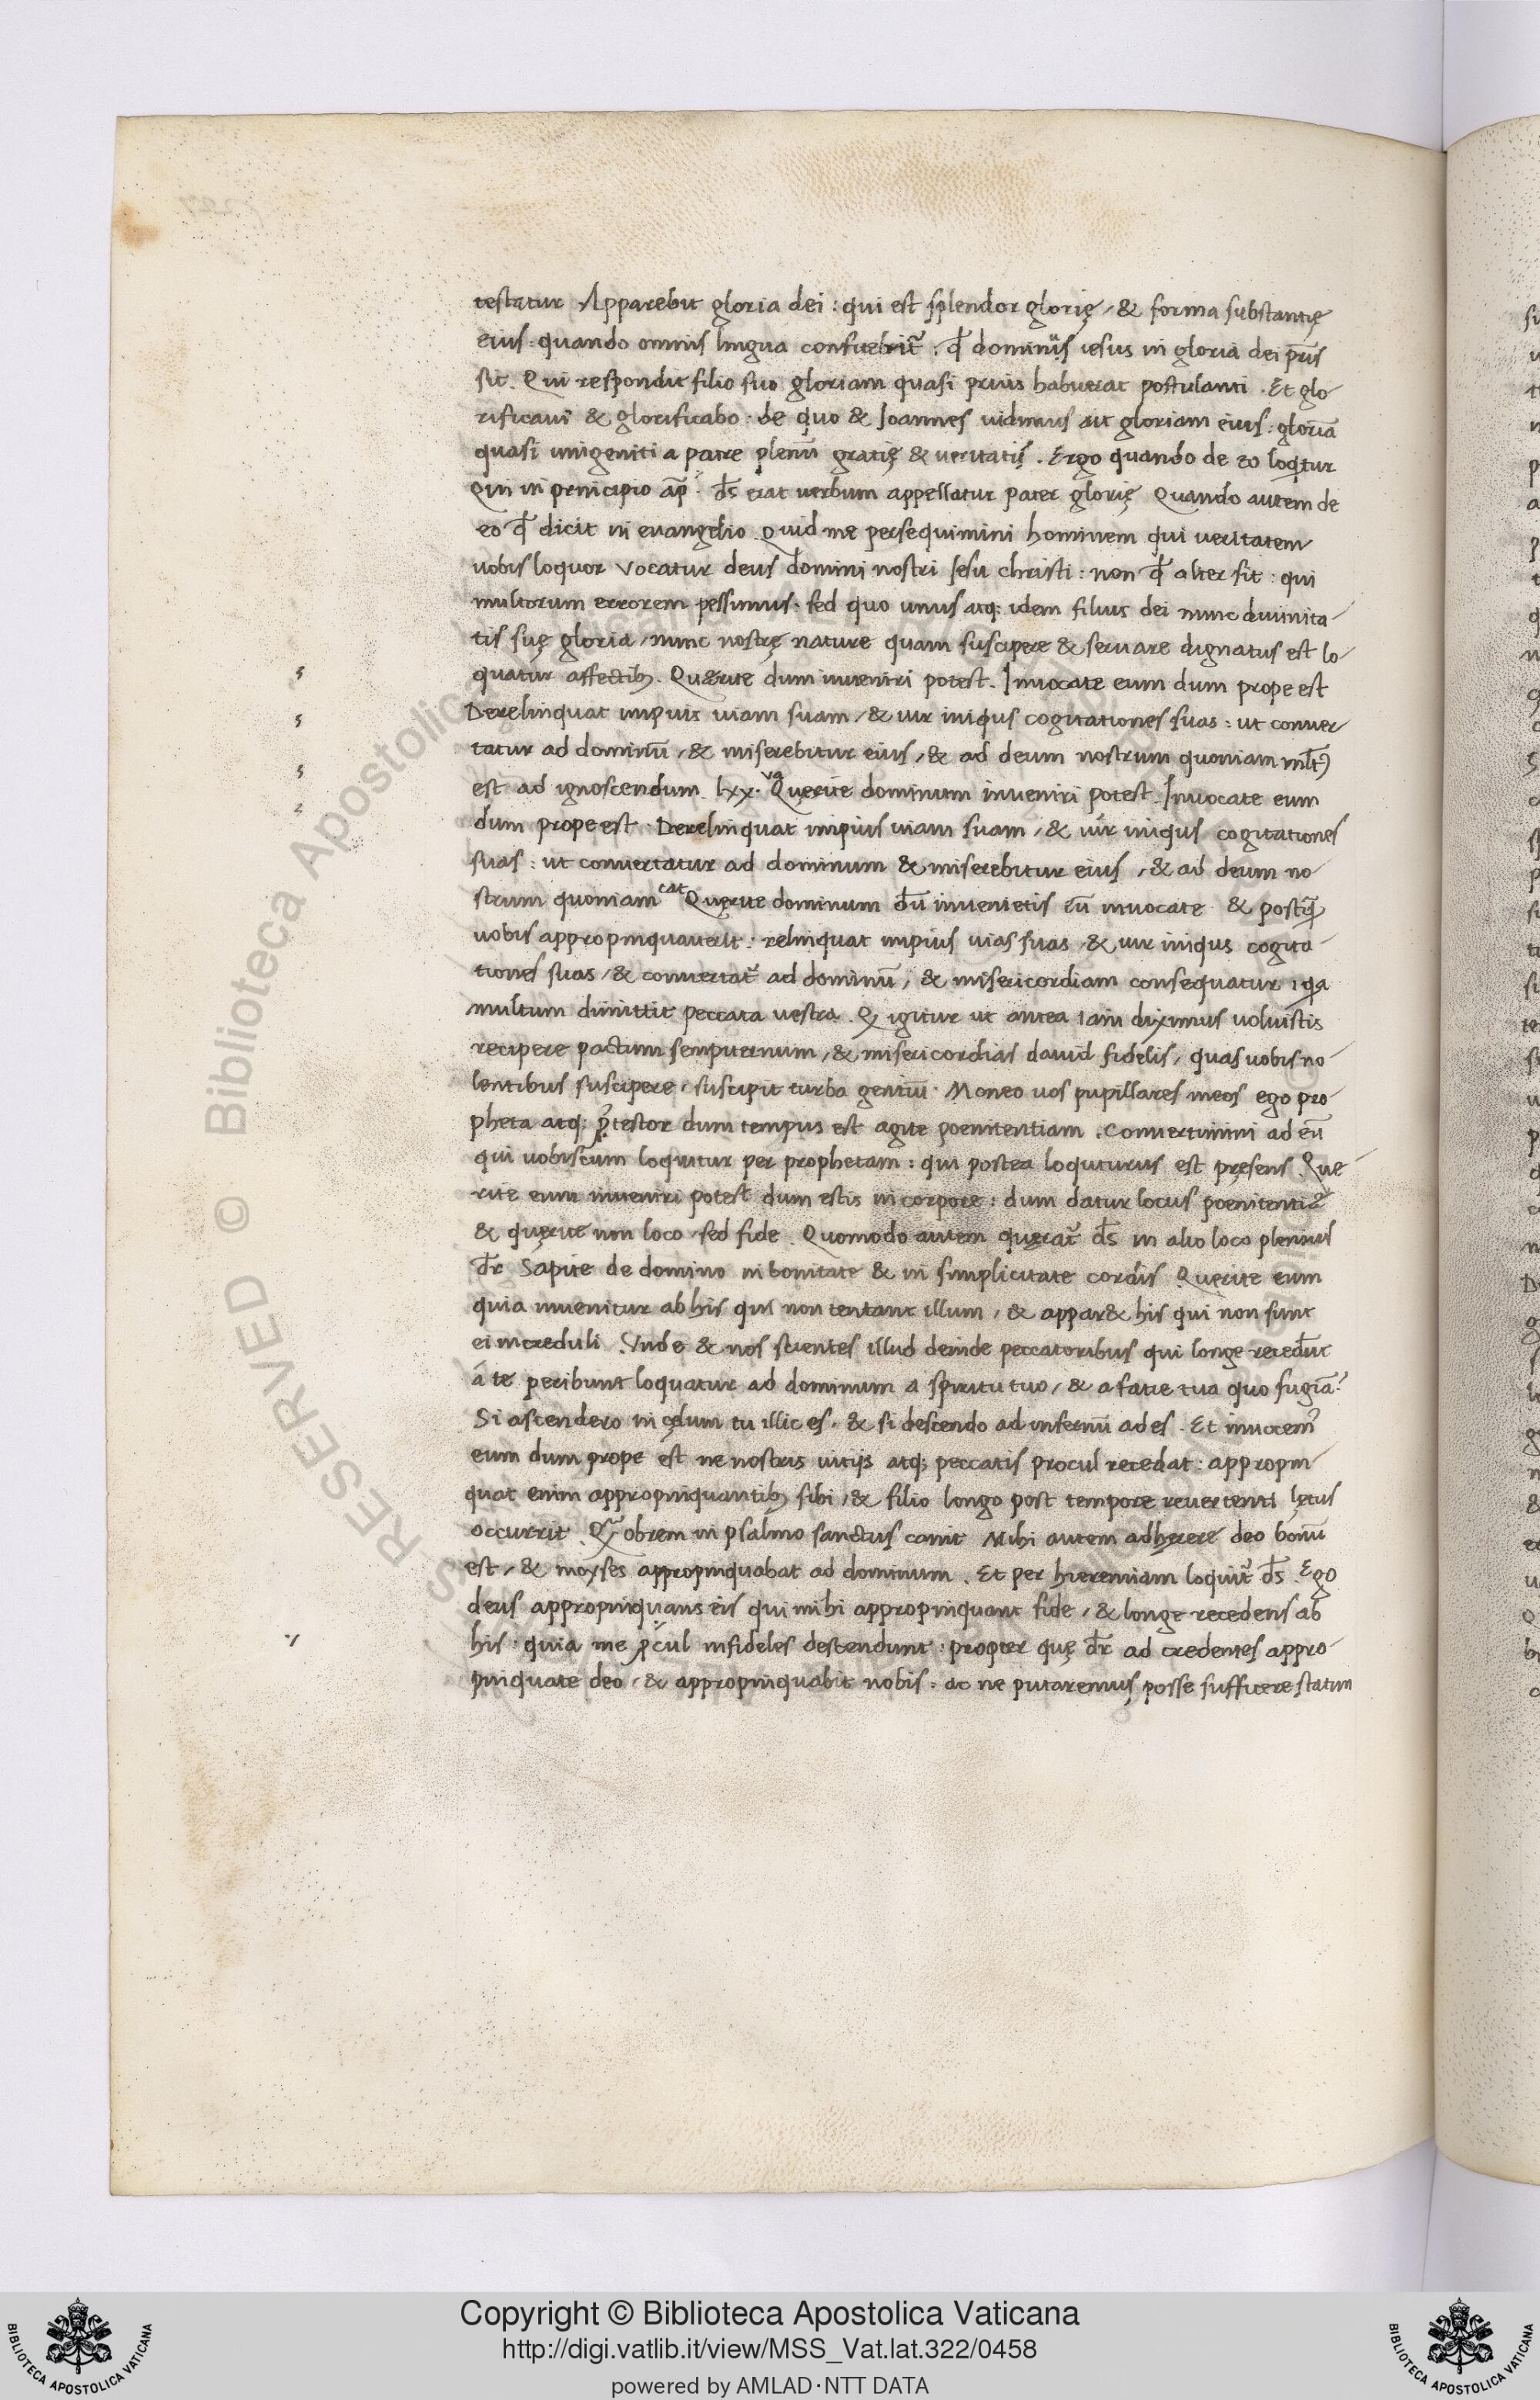 testatur Apparebit gloria dei : qui est splendor glorię, & forma substantię
eius : quando omnis lingua confitebit᷑ : q̄d dominus iesus in gloria dei pr̄is
sit. Qui respondit filio suo gloriam quasi prius habuerat postulanti . Et glo
rificavi & glorificabo . de quo & Joannes vidimus ait gloriam eius : gloriā
quasi unigeniti a patre plenū gratię & veritatis . Ergo quando de eo loq̄tur
Qui in principio ap̄ . ds̄ erat verbum appellatur pater glorię Quando autem de
eo q̄d dicit in evangelio Quid me persequimini hominem qui veritatem
vobis loquor vocatur deus domini nostri Jesu christi : non q̄d alter sit : qui
multorum errorem pessimus . sed quo unus atq; idem filius dei nunc divinita-
tis suę gloria, nunc nostrę nature quam suscipere & servare dignatus est lo-
quatur affectib; . Quęrite dum inveniri potest . Invocate eum dum prope est
Derelinquat impius viam suam, & vir iniqus cogitationes suas : ut conver
tatur ad dominū, & miserebitur eius, & ad deum nostrum quoniam
est ad ignoscendum . lxx. Quęrite dominum inveniri potest . Invocate eum
dum prope est . Derelinquat impius viam suam, & vir iniqus cogitationes
suas : ut convertatur ad dominum & miserebitur eius, & ad deum no-
strum quoniam Quęrite dominum dū invenietis eū invocate & postq̄
vobis appropinquaverit : relinquat impius vias suas, & vir iniqus cogita-
tiones suas, & convertat᷑ ad dominū, & misericordiam consequatur : q̄a
multum dimittit peccata vestra . Q igitur ut antea iam diximus voluistis
recipere pactum sempiternum, & misericordias david fidelis, quas vobis no-
lentibus suscipere, suscipit turba gentiū . Moneo vos pupillares meos ego pro-
pheta atq; p̄testor dum tempus est agite poenitentiam . Convertimini ad eū
qui vobiscum loquitur per prophetam : qui postea loquturus est pręsens . Que-
rite eum inveniri potest dum estis in corpore : dum datur locus poenitentia
& quęrite non loco sed fide . Quomodo autem quęrat᷑ ds̄ in alio loco plenius
dr̄ Sapite de domino in bonitate & in simplicitate cordis Querite eum
quia invenitur ab his qui non tentant illum, & appar& his qui non sunt
ei increduli . Vnde & nos scientes illud deinde peccatoribus qui longe recedūt
a te peribunt loquatur ad dominum a spiritu tuo, & a facie tua quo fugiā?
Si ascendero in cęlum tu illic es, & si descendo ad infernū ades . Et invocem᷒
eum dum prope est ne nostris vitijs atq; peccatis procul recedat : appropin
quat enim appropinquantib; sibi, & filio longo post tempore revertenti lętus
occurrit . Q obrem in psalmo sanctus canit Mihi autem adherere deo bonū
est, & moyses appropinquabat ad dominum . Et per hieremiam loquit᷑ ds̄ . Ego
deus appropinquans eis qui mihi appropinquant fide, & longe recedens ab
his : quia me p̄cul infideles descendunt : propter quę dr̄ ad credentes appro-
pinquate deo, & appropinquabit nobis : ac ne putaremus posse sufficere statim
Copyright © Biblioteca Apostolica Vaticana
http://digi.vatlib.it/view/MSS_Vat.lat.322/0458
powered by AMLAD·NTT DATA